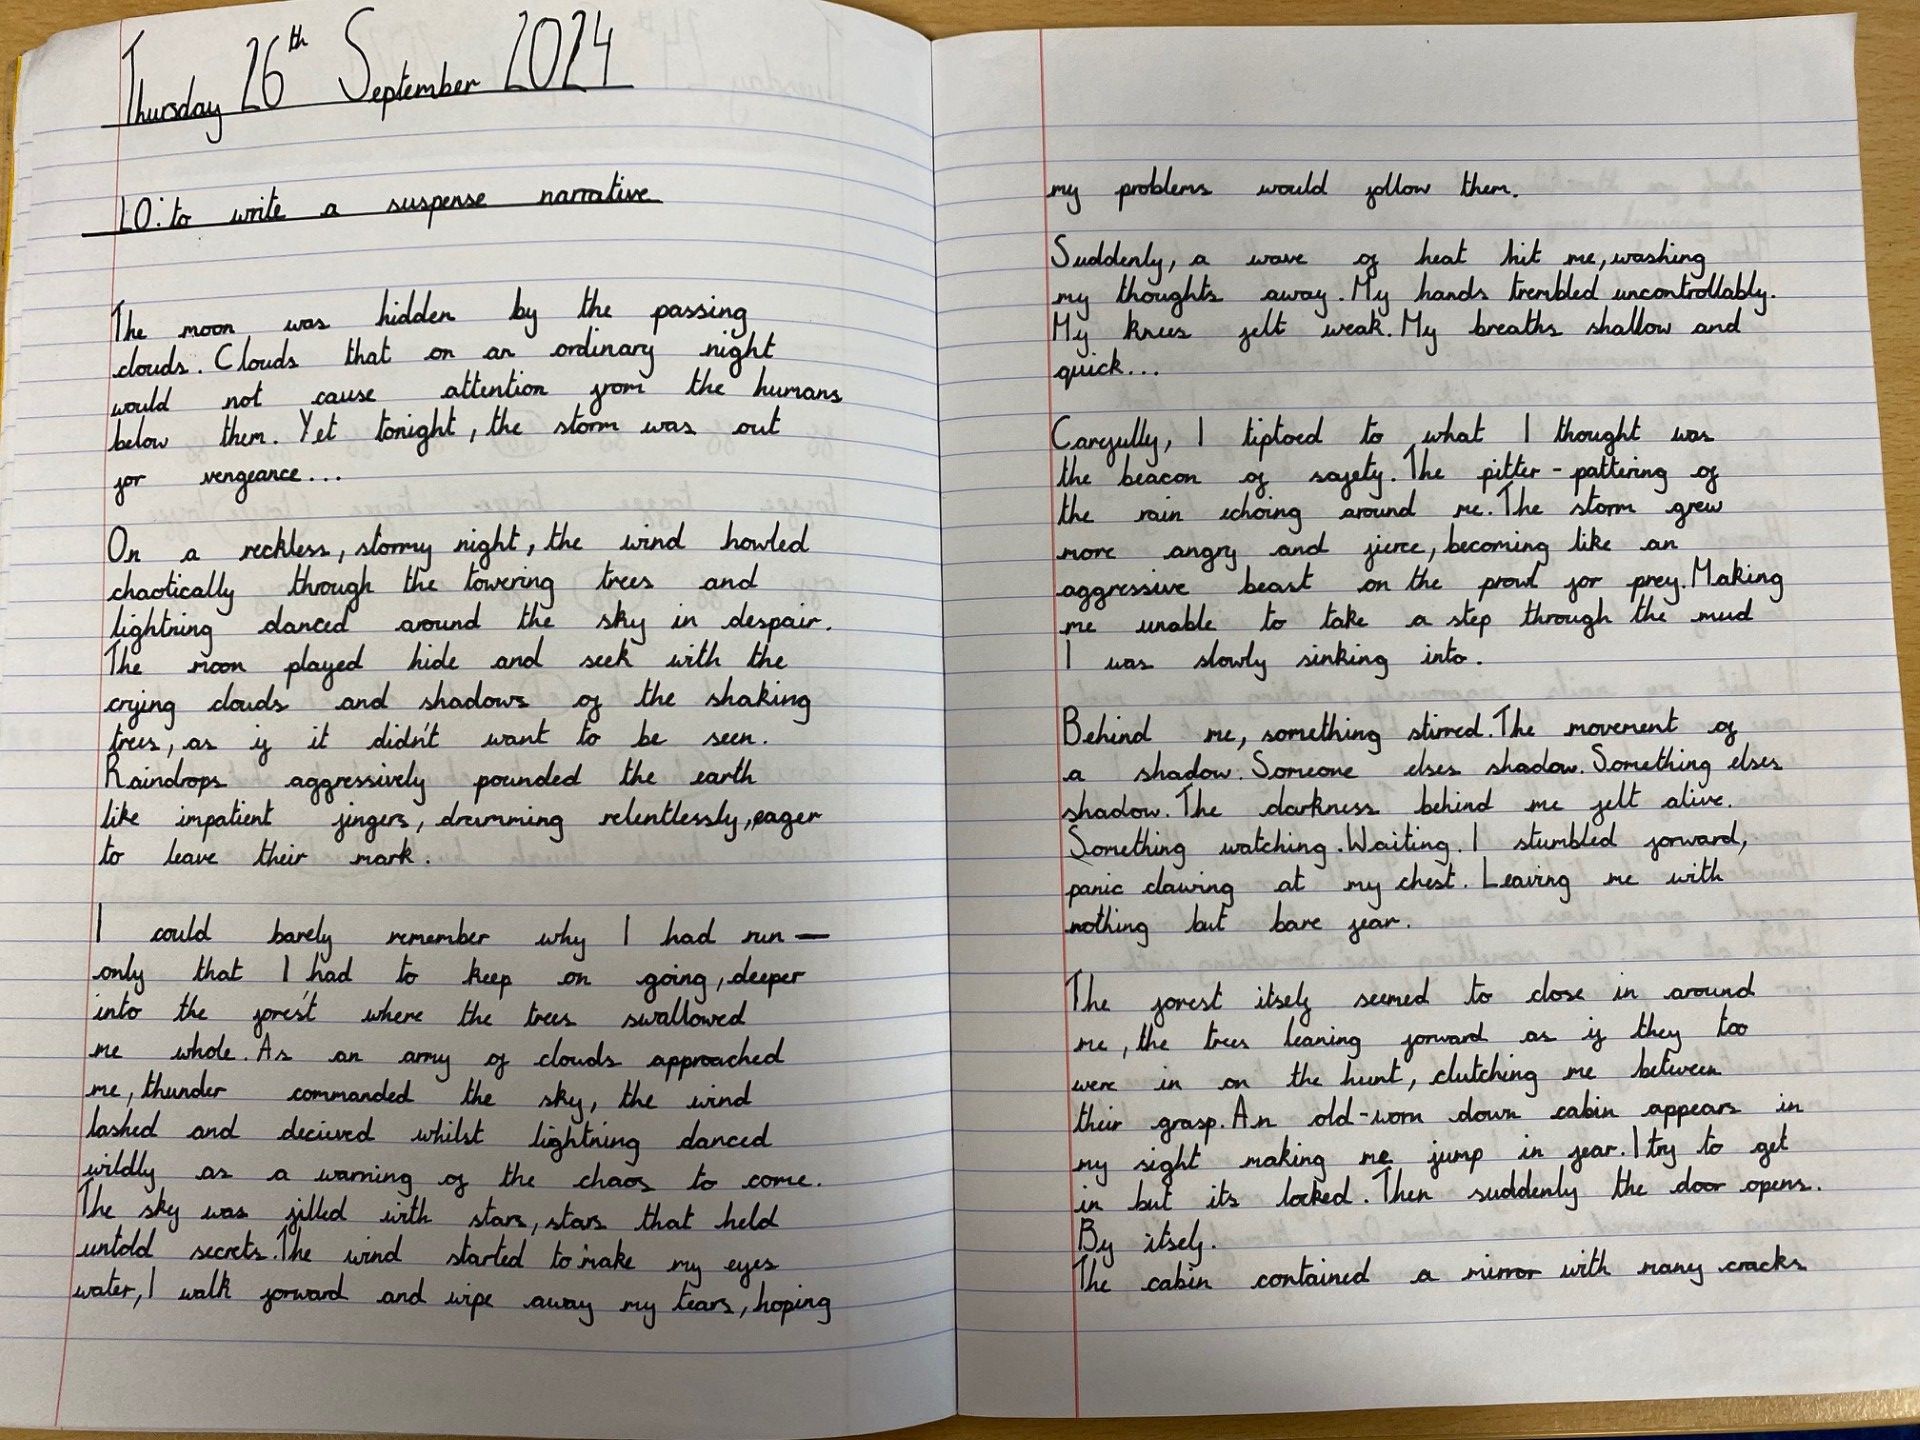 Thursday 26th September 2024
LO: to write a suspense narrative
The moon was hidden by the passing
clouds. Clouds that on an ordinary night
would not cause attention from the humans
below them. Yet tonight, the storm was out
for vengeance...
On a reckless, stormy night, the wind howled
chaotically through the towering trees and
lightning danced around the sky in despair.
The moon played hide and seek with the
crying clouds and shadows of the shaking
trees, as if it didn't want to be seen.
Raindrops aggressively pounded the earth
like impatient fingers, drumming relentlessly, eager
to leave their mark.
I could barely remember why I had run —
only that I had to keep on going, deeper
into the forest where the trees swallowed
me whole. As an army of clouds approached
me, thunder commanded the sky, the wind
lashed and decieved whilst lightning danced
wildly as a warning of the chaos to come.
The sky was filled with stars, stars that held
untold secrets. The wind started to make my eyes
water, I walk forward and wipe away my tears, hoping
my problems would follow them.
Suddenly, a wave of heat hit me, washing
my thoughts away. My hands trembled uncontrollably.
My knees felt weak. My breaths shallow and
quick...
Carefully, I tiptoed to what I thought was
the beacon of safety. The pitter-pattering of
the rain echoing around me. The storm grew
more angry and fierce, becoming like an
aggressive beast on the prowl for prey. Making
me unable to take a step through the mud
I was slowly sinking into.
Behind me, something stirred. The movement of
a shadow. Someone elses shadow. Something elses
shadow. The darkness behind me felt alive.
Something watching. Waiting. I stumbled forward,
panic clawing at my chest. Leaving me with
nothing but bare fear.
The forest itself seemed to close in around
me, the trees leaning forward as if they too
were in on the hunt, clutching me between
their grasp. An old-worn down cabin appears in
my sight making me jump in fear. I try to get
in but its locked. Then suddenly the door opens.
By itself.
The cabin contained a mirror with many cracks